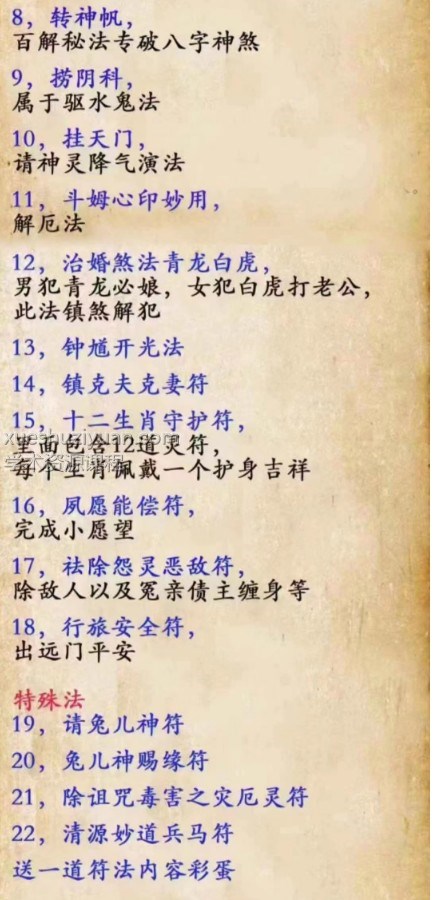 8，转神帆，
百解秘法专破八字神煞
9，捞阴科，
属于驱水鬼法
10，挂天门，
请神灵降气演法
11，斗姆心印妙用，
解厄法
12，治婚煞法青龙白虎，
男犯青龙必娘，女犯白虎打老公，
此法镇煞解犯
13，钟馗开光法
14，镇克夫克妻符
15，十二生肖守护符，
里面包含12道灵符，
xueshuziyuan.com
学术资源课程
每个生肖佩戴一个护身吉祥
16，夙愿能偿符，
完成小愿望
17，祛除怨灵恶敌符，
除敌人以及冤亲债主缠身等
18，行旅安全符，
出远门平安
特殊法
19，请兔儿神符
20，兔儿神赐缘符
21，除诅咒毒害之灾厄灵符
22，清源妙道兵马符
送一道符法内容彩蛋